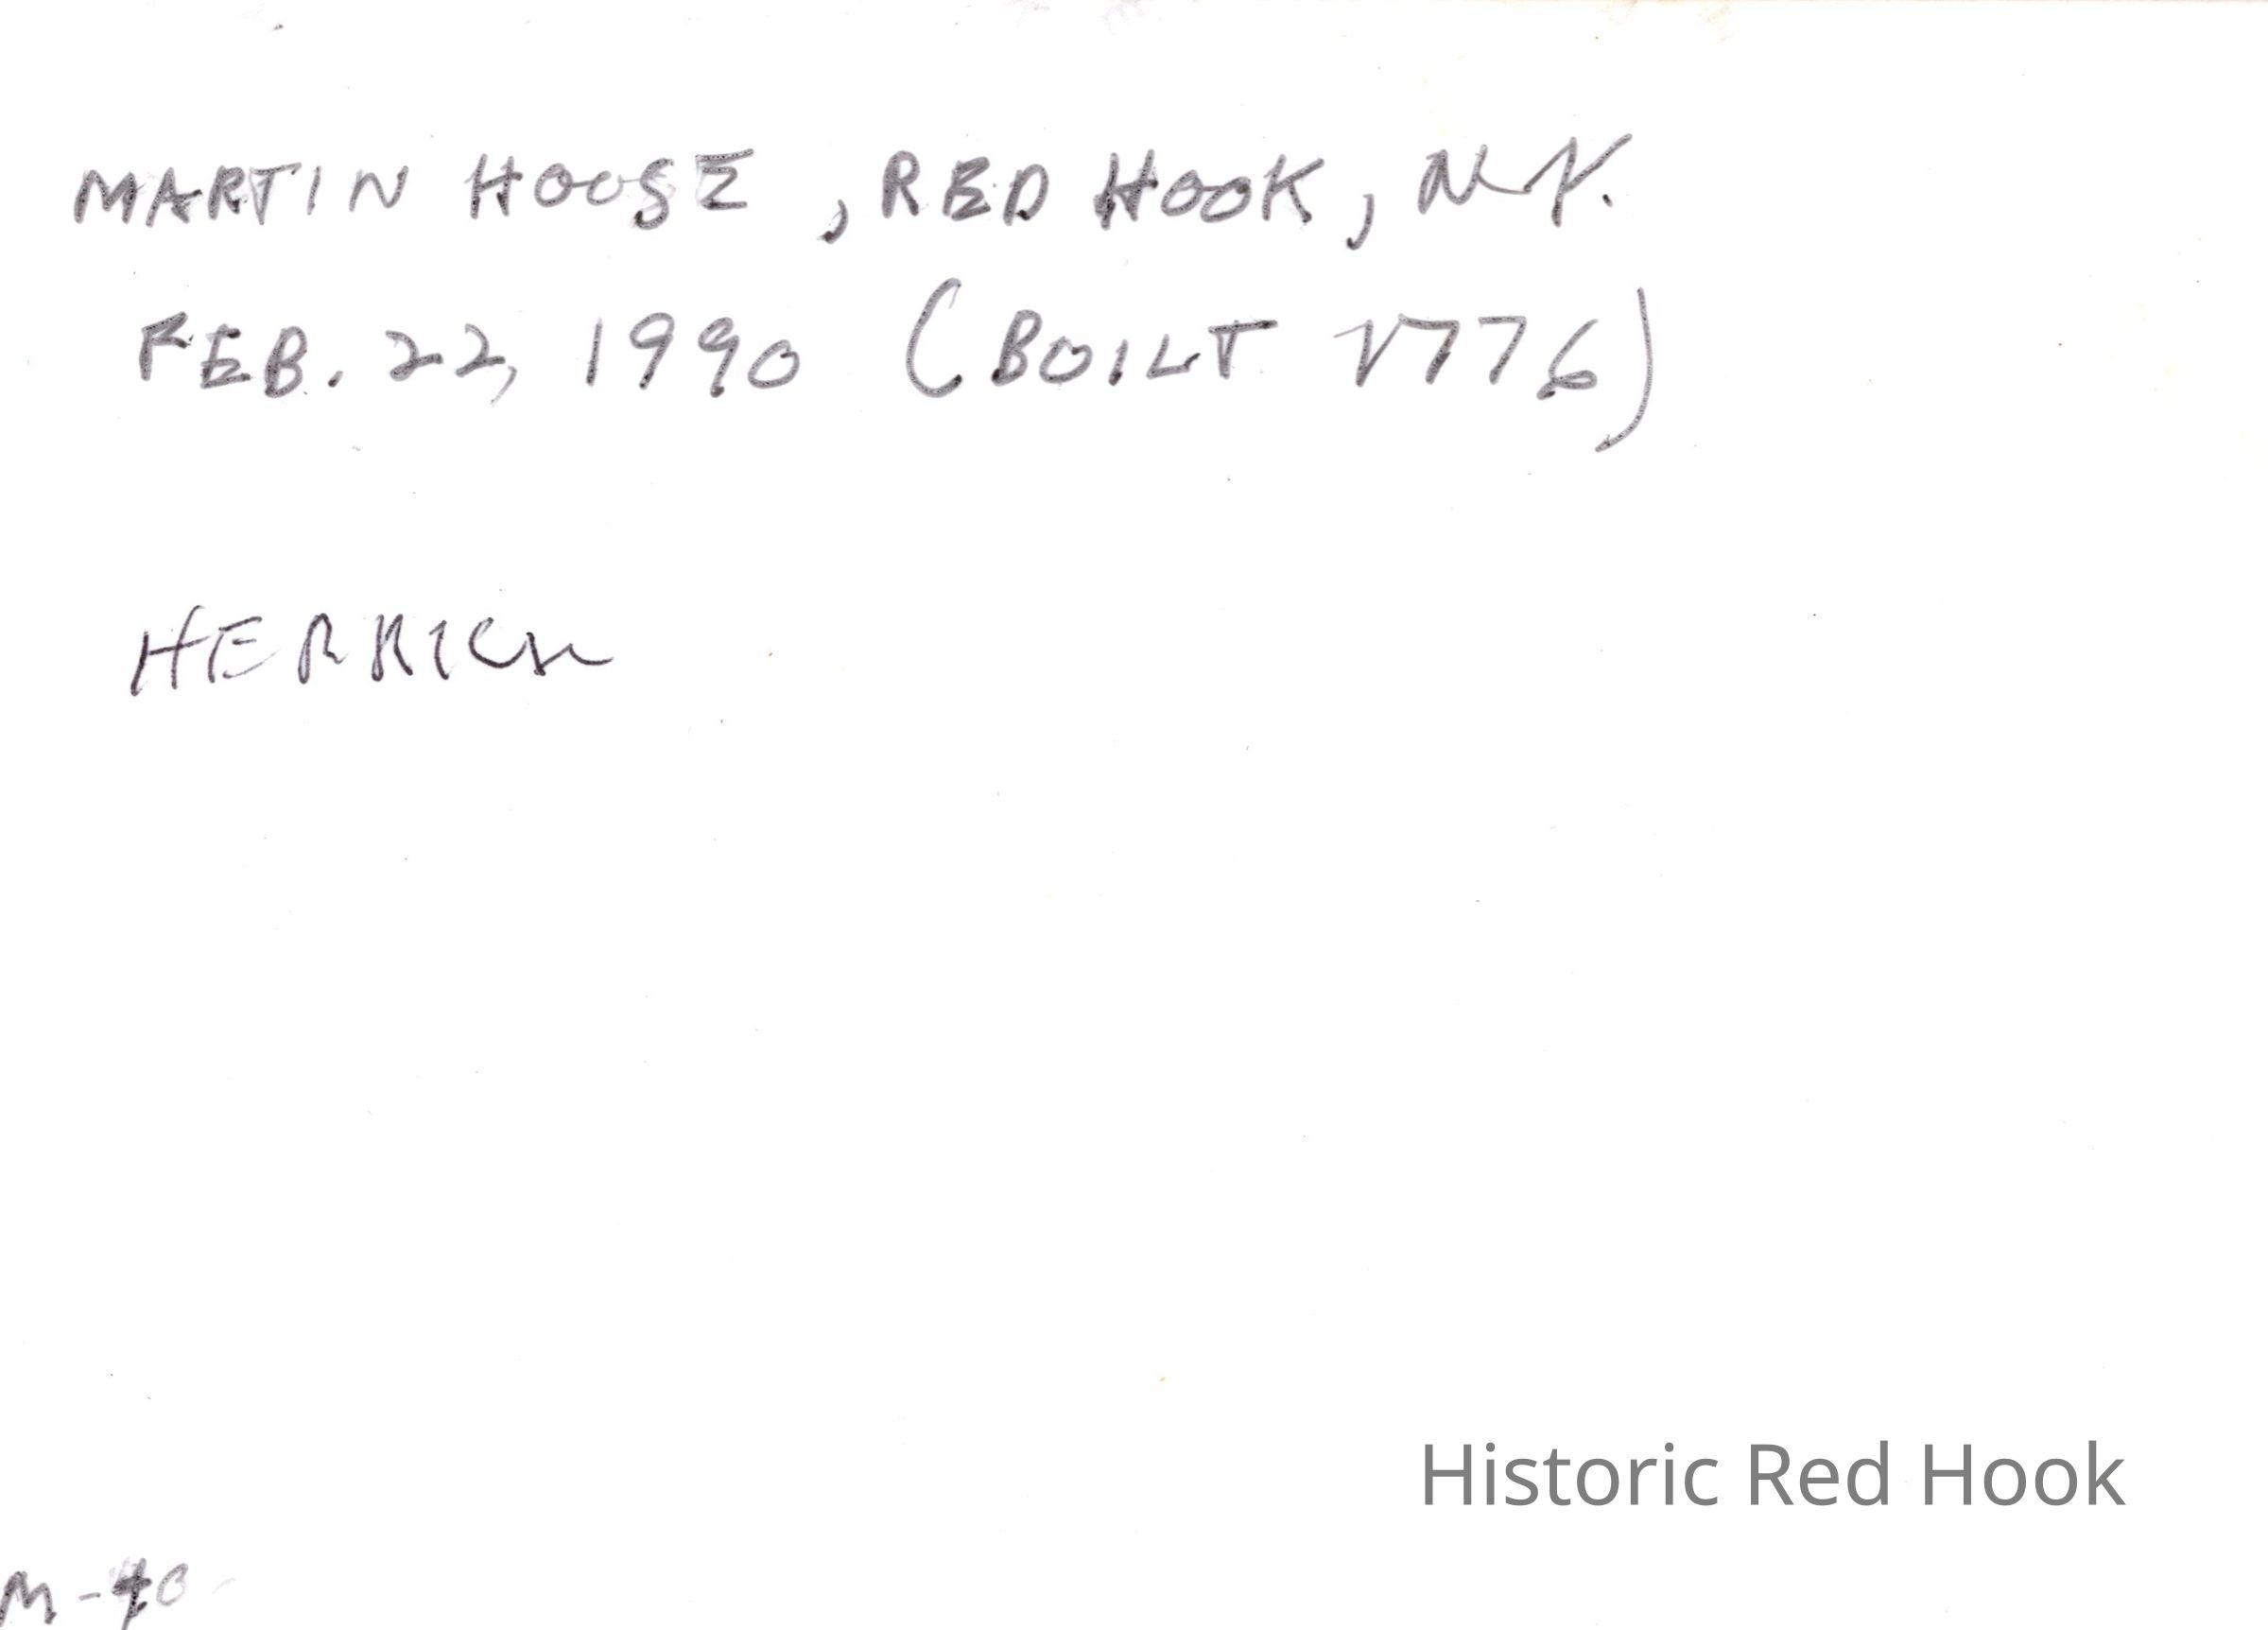 MARTIN HOUSE, RED HOOK, N.Y.
FEB. 22, 1990 (BUILT 1776)
HERRICK
Historic Red Hook
M-40